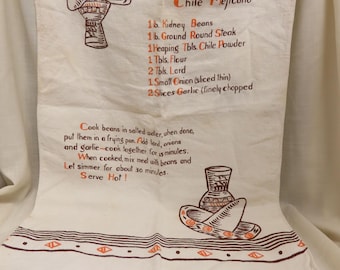 Chile Mejicano
1 lb. Kidney Beans
1 lb. Ground Round Steak
1 Heaping Tbls. Chile Powder
1 Tbls. Flour
2 Tbls. Lard
1 Small Onion (sliced thin)
2 Slices Garlic (finely chopped
Cook beans in salted water, when done,
put them in a frying pan. Add lard, onions
and garlic—cook together for 15 minutes.
When cooked, mix meat with beans and
Let simmer for about 30 minutes.
Serve Hot!